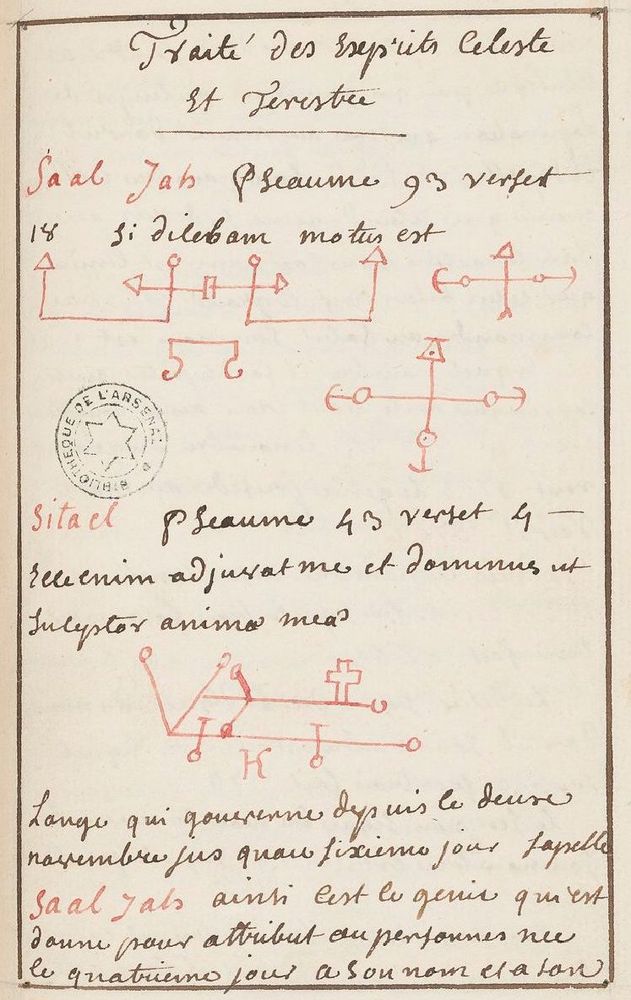 Traité des Esprits Celeste
Et Terestre
Saal Jah Pseaume 93 verset
18 Si dilebam motus est
BIBLIOTHEQUE DE L'ARSENAL
Sitael Pseaume 43 verset 4
Ecce enim adjuvat me et dominus ut
Suseptor anima mea
K
Lange qui gouverne depuis le deuse
novembre jus quau sixieme jour sapelle
Saal Jah ainsi C'est le genie qui est
donne pour attribut au personnes nee
le quatrieme jour a son nom et a son